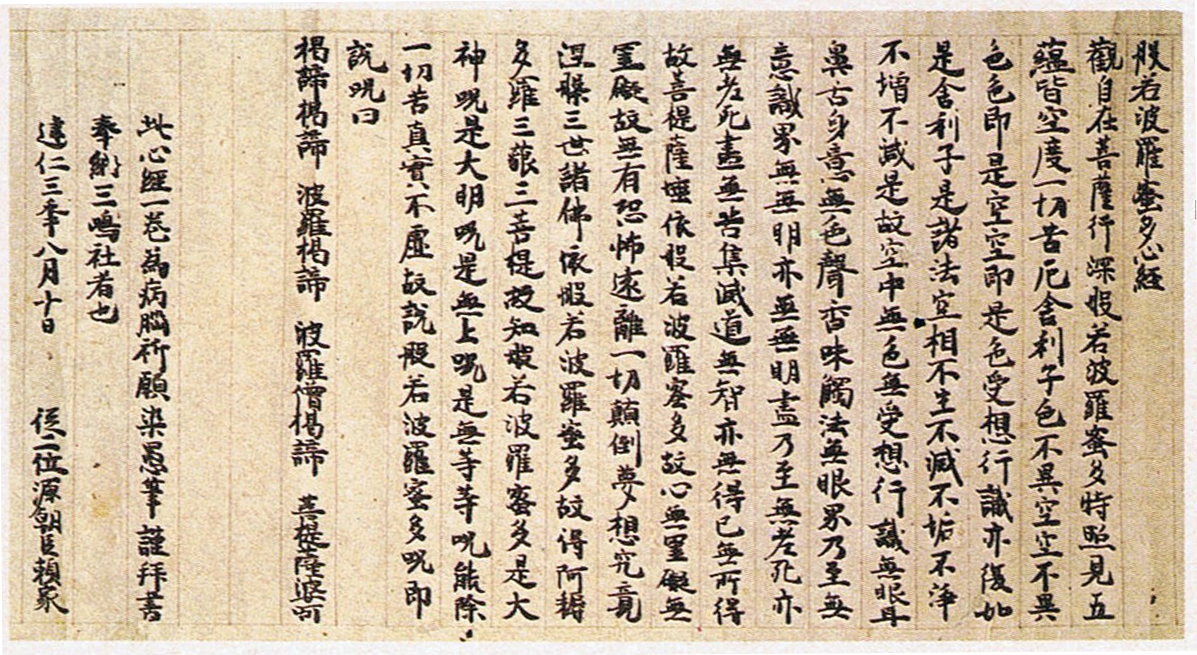 般若波羅蜜多心經
觀自在菩薩行深般若波羅蜜多時照見五
蘊皆空度一切苦厄舍利子色不異空空不異
色色即是空空即是色受想行識亦復如
是舍利子是諸法空相不生不滅不垢不淨
不增不減是故空中無色無受想行識無眼耳
鼻舌身意無色聲香味觸法無眼界乃至無
意識界無無明亦無無明盡乃至無老死亦
無老死盡無苦集滅道無智亦無得已無所得
故菩提薩埵依般若波羅蜜多故心無罣礙無
罣礙故無有恐怖遠離一切顛倒夢想究竟
涅槃三世諸佛依般若波羅蜜多故得阿耨
多羅三藐三菩提故知般若波羅蜜多是大
神呪是大明呪是無上呪是無等等呪能除
一切苦真實不虛故說般若波羅蜜多呪即
說呪曰
揭諦揭諦 波羅揭諦 波羅僧揭諦 菩提薩婆訶
此心經一卷為病腦祈願染愚筆謹拜書
奉納三嶋社者也
建仁三季八月十日 従二位源朝臣頼家